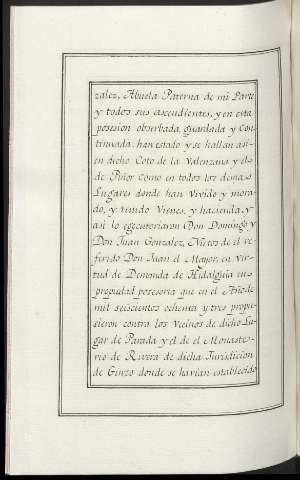 zalez, Abuela Paterna de mi Parte
y todos sus ascendientes, y en esta
posesion observada, guardada y Con-
tinuada, han estado y se hallan asi
en dicho Coto de la Valenzana y el
de Piñor Como en todos los demas
Lugares donde han Vivido y mora-
do, y tenido Vienes, y hacienda, y
asi lo egecutoriaron Don Domingo y
Don Juan Gonzalez, Nietos de el re-
ferido Don Juan el Mayor, en Vir-
tud de Demanda de Hidalguia en
propiedad posesoria que en el Año de
mil seiscientos ochenta y tres propu-
sieron contra los Vecinos de dicho Lu-
gar de Parada y el de el Monaste-
rio de Rivera de dicha Jurisdicion
de Ginzo donde se havian establecido